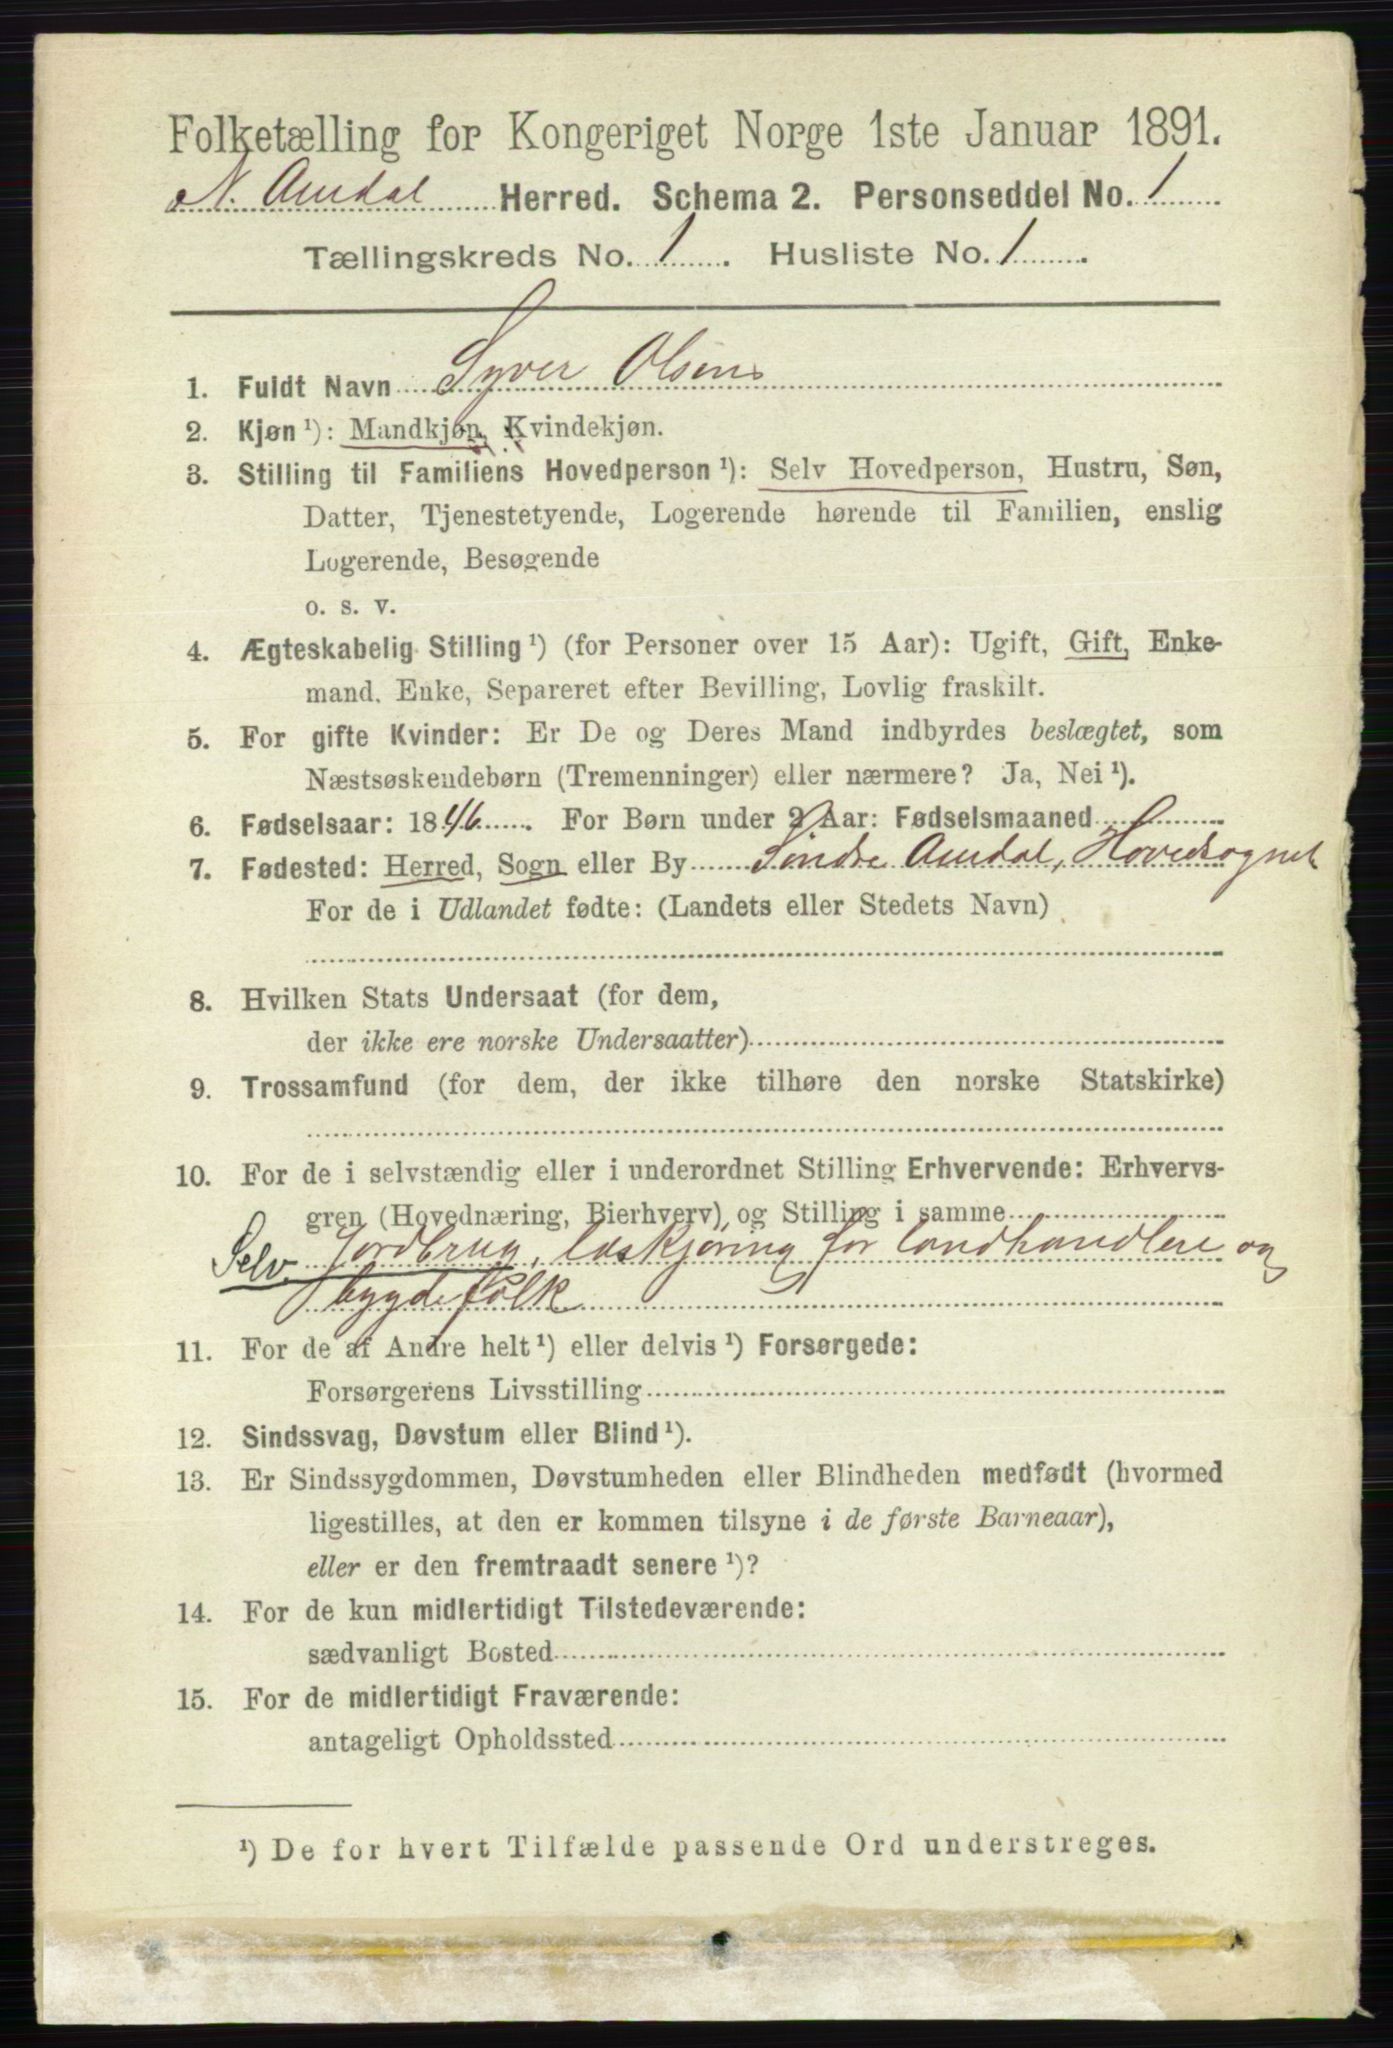 Folketælling for Kongeriget Norge 1ste Januar 1891.
N. Aurdal Herred. Schema 2. Personseddel No. 1
Tællingskreds No. 1. Husliste No. 1.
1. Fuldt Navn Syver Olsen
2. Kjøn ¹): Mandkjøn, Kvindekjøn.
3. Stilling til Familiens Hovedperson ¹): Selv Hovedperson, Hustru, Søn,
Datter, Tjenestetyende, Logerende hørende til Familien, enslig
Logerende, Besøgende
o. s. v.
4. Ægteskabelig Stilling ¹) (for Personer over 15 Aar): Ugift, Gift, Enke-
mand, Enke, Separeret efter Bevilling, Lovlig fraskilt.
5. For gifte Kvinder: Er De og Deres Mand indbyrdes beslægtet, som
Næstsøskendebørn (Tremenninger) eller nærmere? Ja, Nei ¹).
6. Fødselsaar: 1846. For Børn under 2 Aar: Fødselsmaaned
7. Fødested: Herred, Sogn eller By Søndre Aurdal, Hovedsognet
For de i Udlandet fødte: (Landets eller Stedets Navn)
8. Hvilken Stats Undersaat (for dem,
der ikke ere norske Undersaatter)
9. Trossamfund (for dem, der ikke tilhøre den norske Statskirke)
10. For de i selvstændig eller i underordnet Stilling Erhvervende: Erhvervs-
gren (Hovednæring, Bierhverv) og Stilling i samme
Selv. Jordbrug, læskjøring for landhandlere og
bygdefolk
11. For de af Andre helt ¹) eller delvis ¹) Forsørgede:
Forsørgerens Livsstilling
12. Sindssvag, Døvstum eller Blind ¹).
13. Er Sindssygdommen, Døvstumheden eller Blindheden medfødt (hvormed
ligestilles, at den er kommen tilsyne i de første Barneaar),
eller er den fremtraadt senere ¹)?
14. For de kun midlertidigt Tilstedeværende:
sædvanligt Bosted
15. For de midlertidigt Fraværende:
antageligt Opholdssted
¹) De for hvert Tilfælde passende Ord understreges.